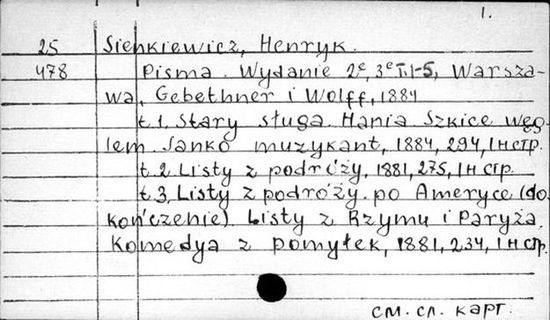 1.
25 Sienkiewicz, Henryk.
478 Pisma. Wydanie 2e, 3e T.1-5, Warsza-
wa, Gebethner i Wolff, 1884
t.1. Stary sługa. Hania. Szkice węg-
lem. Janko muzykant, 1884, 294, 1 н стр.
t.2. Listy z podróży, 1881, 275, 1 н стр.
t.3. Listy z podróży po Ameryce (do-
kończenie). Listy z Rzymu i Paryża.
Komedya z pomyłek, 1881, 234, 1 н стр.
см. сл. карт.